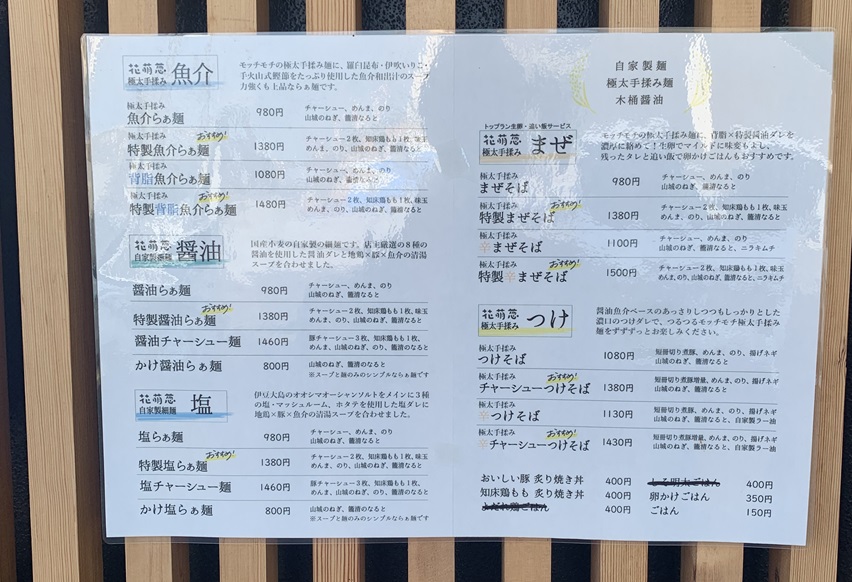 花萌葱
極太手揉み
魚介
モッチモチの極太手揉み麺に、羅臼昆布・伊吹いりこ・
手火山式鰹節をたっぷり使用した魚介和出汁のスープ
力強くも上品ならぁ麺です。
極太手揉み
魚介らぁ麺 980円 チャーシュー、めんま、のり
山城のねぎ、籠清なると
極太手揉み おすすめ!
特製魚介らぁ麺 1380円 チャーシュー2枚、知床鶏もも1枚、味玉
めんま、のり、山城のねぎ、籠清なると
極太手揉み
背脂魚介らぁ麺 1080円 チャーシュー、めんま、のり
山城のねぎ、籠清なると
極太手揉み おすすめ!
特製背脂魚介らぁ麺 1480円 チャーシュー2枚、知床鶏もも1枚、味玉
めんま、のり、山城のねぎ、籠清なると
花萌葱
自家製細麺
醤油
国産小麦の自家製の細麺です。店主厳選の8種の
醤油を使用した醤油ダレと地鶏×豚×魚介の清湯
スープを合わせました。
醤油らぁ麺 980円 チャーシュー、めんま、のり
山城のねぎ、籠清なると
おすすめ!
特製醤油らぁ麺 1380円 チャーシュー2枚、知床鶏もも1枚、味玉
めんま、のり、山城のねぎ、籠清なると
醤油チャーシュー麺 1460円 豚チャーシュー3枚、知床鶏もも1枚
めんま、のり、山城のねぎ、籠清なると
かけ醤油らぁ麺 800円 山城のねぎ、籠清なると
※スープと麺のみのシンプルならぁ麺です
花萌葱
自家製細麺
塩
伊豆大島のオオシマオーシャンソルトをメインに3種
の塩・マッシュルーム、ホタテを使用した塩ダレに
地鶏×豚×魚介の清湯スープを合わせました。
塩らぁ麺 980円 チャーシュー、めんま、のり
山城のねぎ、籠清なると
おすすめ!
特製塩らぁ麺 1380円 チャーシュー2枚、知床鶏もも1枚、味玉
めんま、のり、山城のねぎ、籠清なると
塩チャーシュー麺 1460円 豚チャーシュー3枚、知床鶏もも1枚
めんま、のり、山城のねぎ、籠清なると
かけ塩らぁ麺 800円 山城のねぎ、籠清なると
※スープと麺のみのシンプルならぁ麺です
自家製麺
極太手揉み麺
木桶醤油
トップラン生卵・追い飯サービス
花萌葱
極太手揉み
まぜ
モッチモチの極太手揉み麺に、背脂×特製醤油ダレを
濃厚に絡めて!生卵でマイルドに味変もよし、
残ったタレと追い飯で卵かけごはんもおすすめです。
極太手揉み
まぜそば 980円 チャーシュー、めんま、のり
山城のねぎ、籠清なると
極太手揉み おすすめ!
特製まぜそば 1380円 チャーシュー2枚、知床鶏もも1枚、味玉
めんま、のり、山城のねぎ、籠清なると
極太手揉み
辛まぜそば 1100円 チャーシュー、めんま、のり
山城のねぎ、籠清なると、ニラキムチ
極太手揉み おすすめ!
特製辛まぜそば 1500円 チャーシュー2枚、知床鶏もも1枚、味玉
めんま、のり、山城のねぎ、籠清なると、ニラキムチ
花萌葱
極太手揉み
つけ
醤油魚介ベースのあっさりしつつもしっかりとした
濃口のつけダレで、つるつるモッチモチ極太手揉み
麺をずずずっとお楽しみください。
極太手揉み
つけそば 1080円 短冊切り煮豚、めんま、のり、揚げネギ
山城のねぎ、籠清なると
極太手揉み おすすめ!
チャーシューつけそば 1380円 短冊切り煮豚増量、めんま、のり、揚げネギ
山城のねぎ、籠清なると
極太手揉み
辛つけそば 1130円 短冊切り煮豚、めんま、のり、揚げネギ
山城のねぎ、籠清なると、自家製ラー油
極太手揉み おすすめ!
辛チャーシューつけそば 1430円 短冊切り煮豚増量、めんま、のり、揚げネギ
山城のねぎ、籠清なると、自家製ラー油
おいしい豚 炙り焼き丼 400円
知床鶏もも 炙り焼き丼 400円
よだれ鶏ごはん 400円
しる明太ごはん 400円
卵かけごはん 350円
ごはん 150円